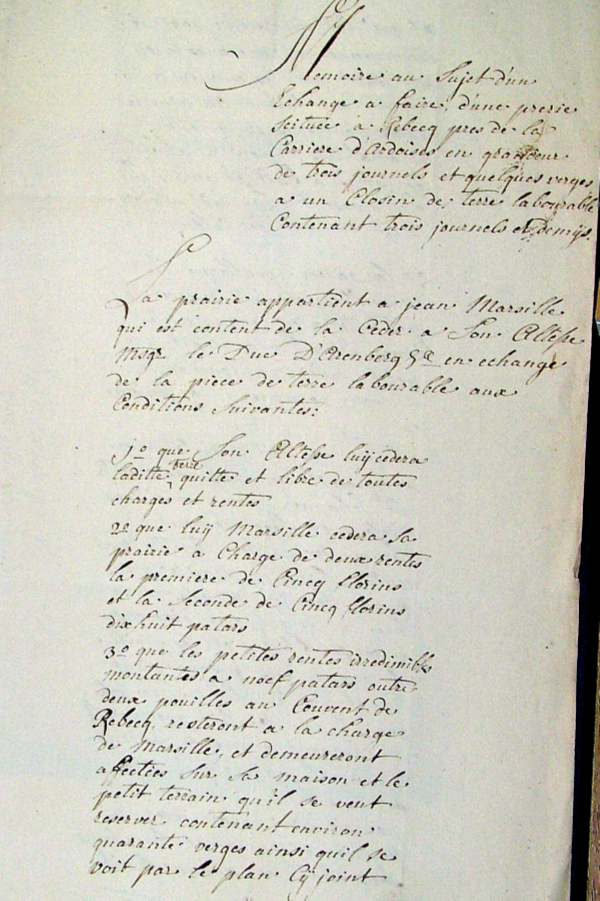 Memoire au Sujet d'un
Echange a faire, d'une prerie
Scituée a Rebecq pres de la
Carriere d'Ardoises en grandeur
de trois journels et quelques verges
a un Closin de terre labourable
Contenant trois journels et demijs.
La prairie appartient a jean Marsille
qui est content de la Ceder a Son Altesse
Msgr. le Duc D'Arenberg &a en echange
de la piece de terre labourable aux
Conditions Suivantes:
1o que Son Altesse luij cedera
laditte terre quitte et libre de toutes
charges et rentes
2o que luij Marsille cedera sa
prairie a Charge de deux rentes
la premiere de Cincq florins
et la Seconde de Cincq florins
dixhuit patars
3o que les petites rentes irredimibles
montantes a noef patars outre
deux pouilles au Couvent de
Rebecq, resteront a la charge
de Marsille, et demeureront
affectées sur sa maison et le
petit terrain qu'il se veut
reserver contenant environ
quarante verges ainsi quil se
voit par le plan Cij joint